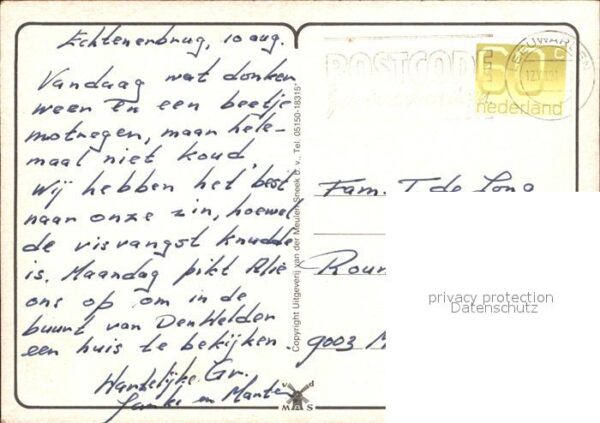 Echtenerbrug, 10 aug.
Vandaag wat donker
weer en een beetje
motregen, maar hele-
maal niet koud,
Wij hebben het best
naar onze zin, hoewel
de visvangst knudde
is. Maandag pikt Alie
ons op om in de
buurt van Den Helder
een huis te bekijken.
Hartelijke Gr.
en
Copyright Uitgeverij van der Meulen Sneek b.v., Tel. 05150-18315*
v d
MAS
POSTCODE
LEEUWARDEN
60
nederland
Fam. T de Jong
9003
privacy protection
Datenschutz